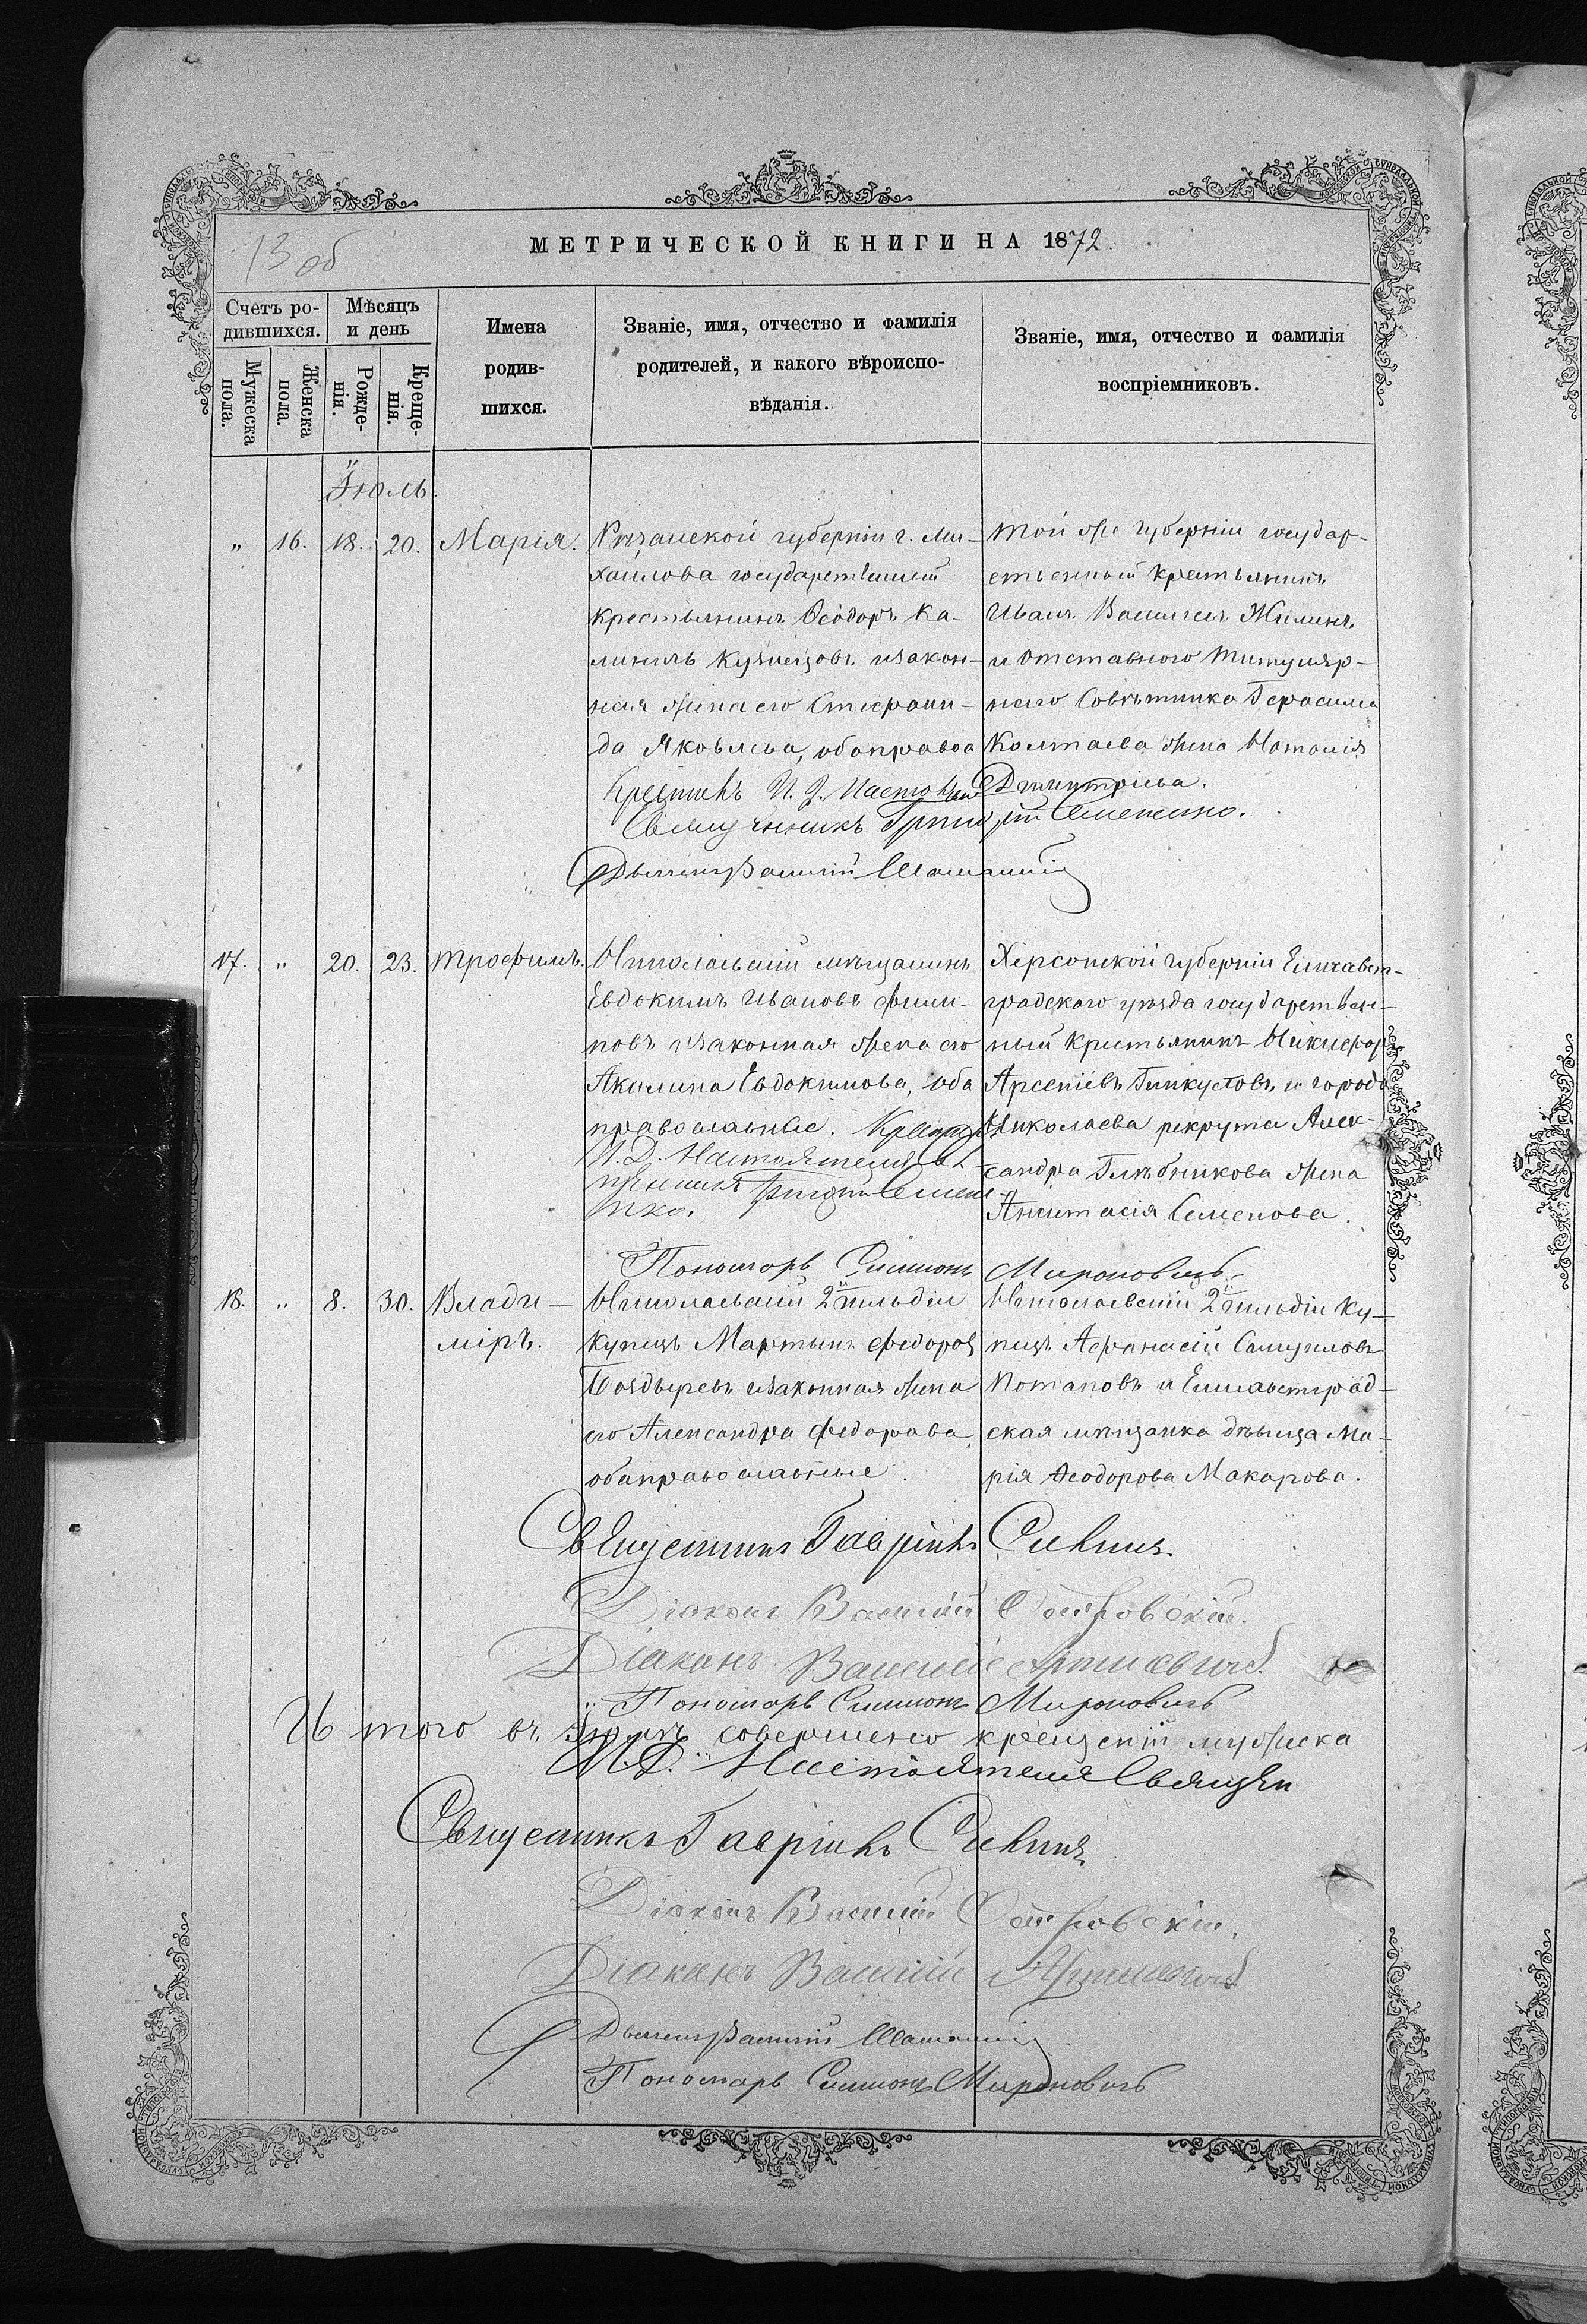 13 об
МЕТРИЧЕСКОЙ КНИГИ НА 1872
Счетъ ро-
дившихся.
Мѣсяцъ
и день
Мужеска
пола.
Женска
пола.
Рожде-
нія.
Креще-
нія.
Имена
родив-
шихся.
Званіе, имя, отчество и фамилія
родителей, и какого вѣроиспо-
вѣданія.
Званіе, имя, отчество и фамилія
воспріемниковъ.
Іюль.
" 16. 18. 20. Марія.
Рязанской губерніи г. Ми-
хайлова государственный
крестьянинъ Ѳеодоръ Ка-
лининъ Кузнецовъ и закон-
ная жена его Степани-
да Яковлева, оба правос
Той же губерніи государ-
ственный крестьянинъ
Иванъ Василіевъ Жилинъ
и отставного титуляр-
наго Совѣтника Герасима
Колтаева жена Наталія
Дмитріева.
Крестилъ И. д. Настоятеля
Священникъ Григорій Семенко.
Дьячекъ Василій
17. " 20. 23. Трофимъ.
Николаевскій мѣщанинъ
Евдокимъ Ивановъ Фили-
повъ и законная жена его
Акилина Евдокимова, оба
православные. Крестилъ
И. Д. Настоятеля Свя-
щенникъ Григорій Семен-
нко.
Херсонской губерніи Елисавет-
градского уѣзда государствен-
ный крестьянинъ Никифоръ
Арсеніевъ и города
Николаева рекрута Алек-
сандра Глѣбникова жена
Анастасія Семенова.
Пономарь Симеонъ Мироновичъ
18. " 8. 30. Влади-
міръ.
Николаевскій 2й гильдіи
купецъ Мартынъ Федоровъ
Болдыревъ и законная жена
его Александра Федорова
оба православные.
Николаевскій 2й гильдіи ку-
пецъ Афанасій Самуиловъ
Потаповъ и Елисаветград-
ская мѣщанка дѣвица Ма-
рія Ѳеодорова Макарова.
Священникъ Гавріилъ
Діаконъ Василій Островскій.
Діаконъ Василій
Пономарь Симеонъ Мироновичъ
Итого въ Іюлѣ совершено крещеній мужеска
И. Д. Настоятеля Священ
Священникъ Гавріилъ
Діаконъ Василій Островскій.
Діаконъ Василій
Дьячекъ Василій
Пономарь Симеонъ Мироновичъ